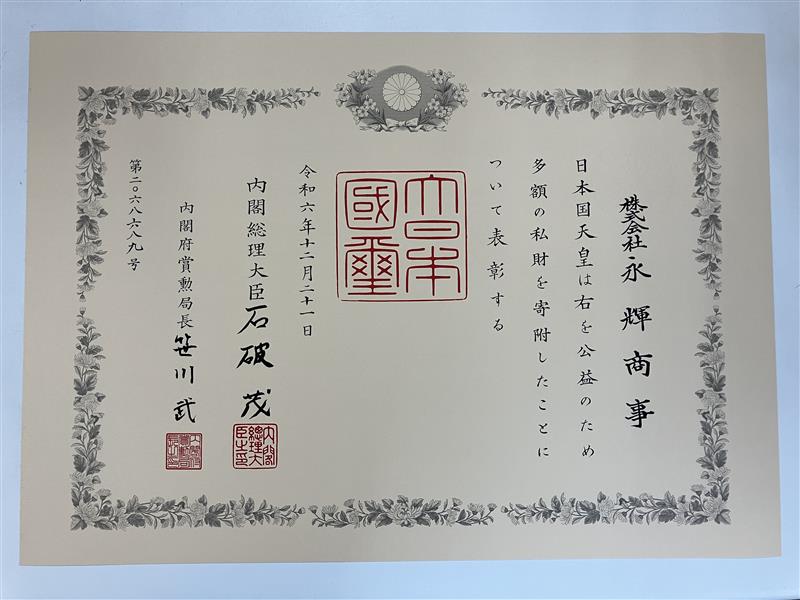 株式会社永輝商事
日本国天皇は右を公益のため
多額の私財を寄附したことに
ついて表彰する
大日本國璽
令和六年十二月二十一日
内閣総理大臣石破茂
内閣総理大臣之印
内閣府賞勲局長笹川武
第二〇六八六八九号